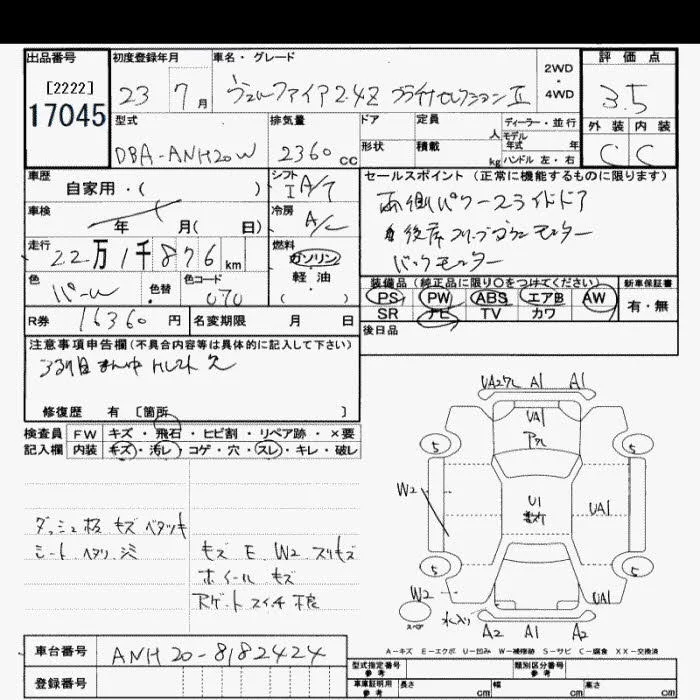 出品番号 初度登録年月 車名・グレード 2WD・4WD 評価点
[2222]
17045
23 7月 ヴェルファイア 2.4Z プラチナセレクションⅡ 3.5
型式 排気量 ドア 定員 人 ディーラー・並行 外装 内装
モデル年式 年
DBA-ANH20W 2360cc 形状 積載 kg ハンドル 左・右 C C
車歴 自家用・( ) シフト I A/T
セールスポイント(正常に機能するものに限ります)
両側パワースライドドア
後席フリップダウンモニター
バックモニター
車検 年 月( 日) 冷房 A/C
走行 22万1千876km 燃料 ガソリン
軽・油
( )
色 パール 色替 色コード 070
装備品(純正品に限り○をつけてください) 新車保証書
PS PW ABS エアB AW 有・無
SR ナビ TV カワ
R券 16360円 名変期限 月 日
後日品
注意事項申告欄(不具合内容等は具体的に記入して下さい)
3列目まん中 欠
修復歴 有 [箇所 ]
検査員 FW キズ・飛石・ヒビ割・リペア跡・×要
記入欄 内装 キズ・汚レ・コゲ・穴・スレ・キレ・破レ
ダッシュ板 キズ ベタツキ
シート ヘタリ
キズ E W2 スリキズ
ホイール キズ
Rゲートスイッチ不良
UA27L A1 A1
UA1
5 5
W2 U1 UA1
5 5
W2 UA1
スペア 水入り A2 A1 A2
A-キズ E-エクボ U-凹み W-補修跡 S-サビ C-腐食 XX-交換済
車台番号 ANH20-8182424
登録番号
型式指定番号 参考 類別区分番号 参考
車庫証明用 参考 長さ cm 幅 cm 高さ cm